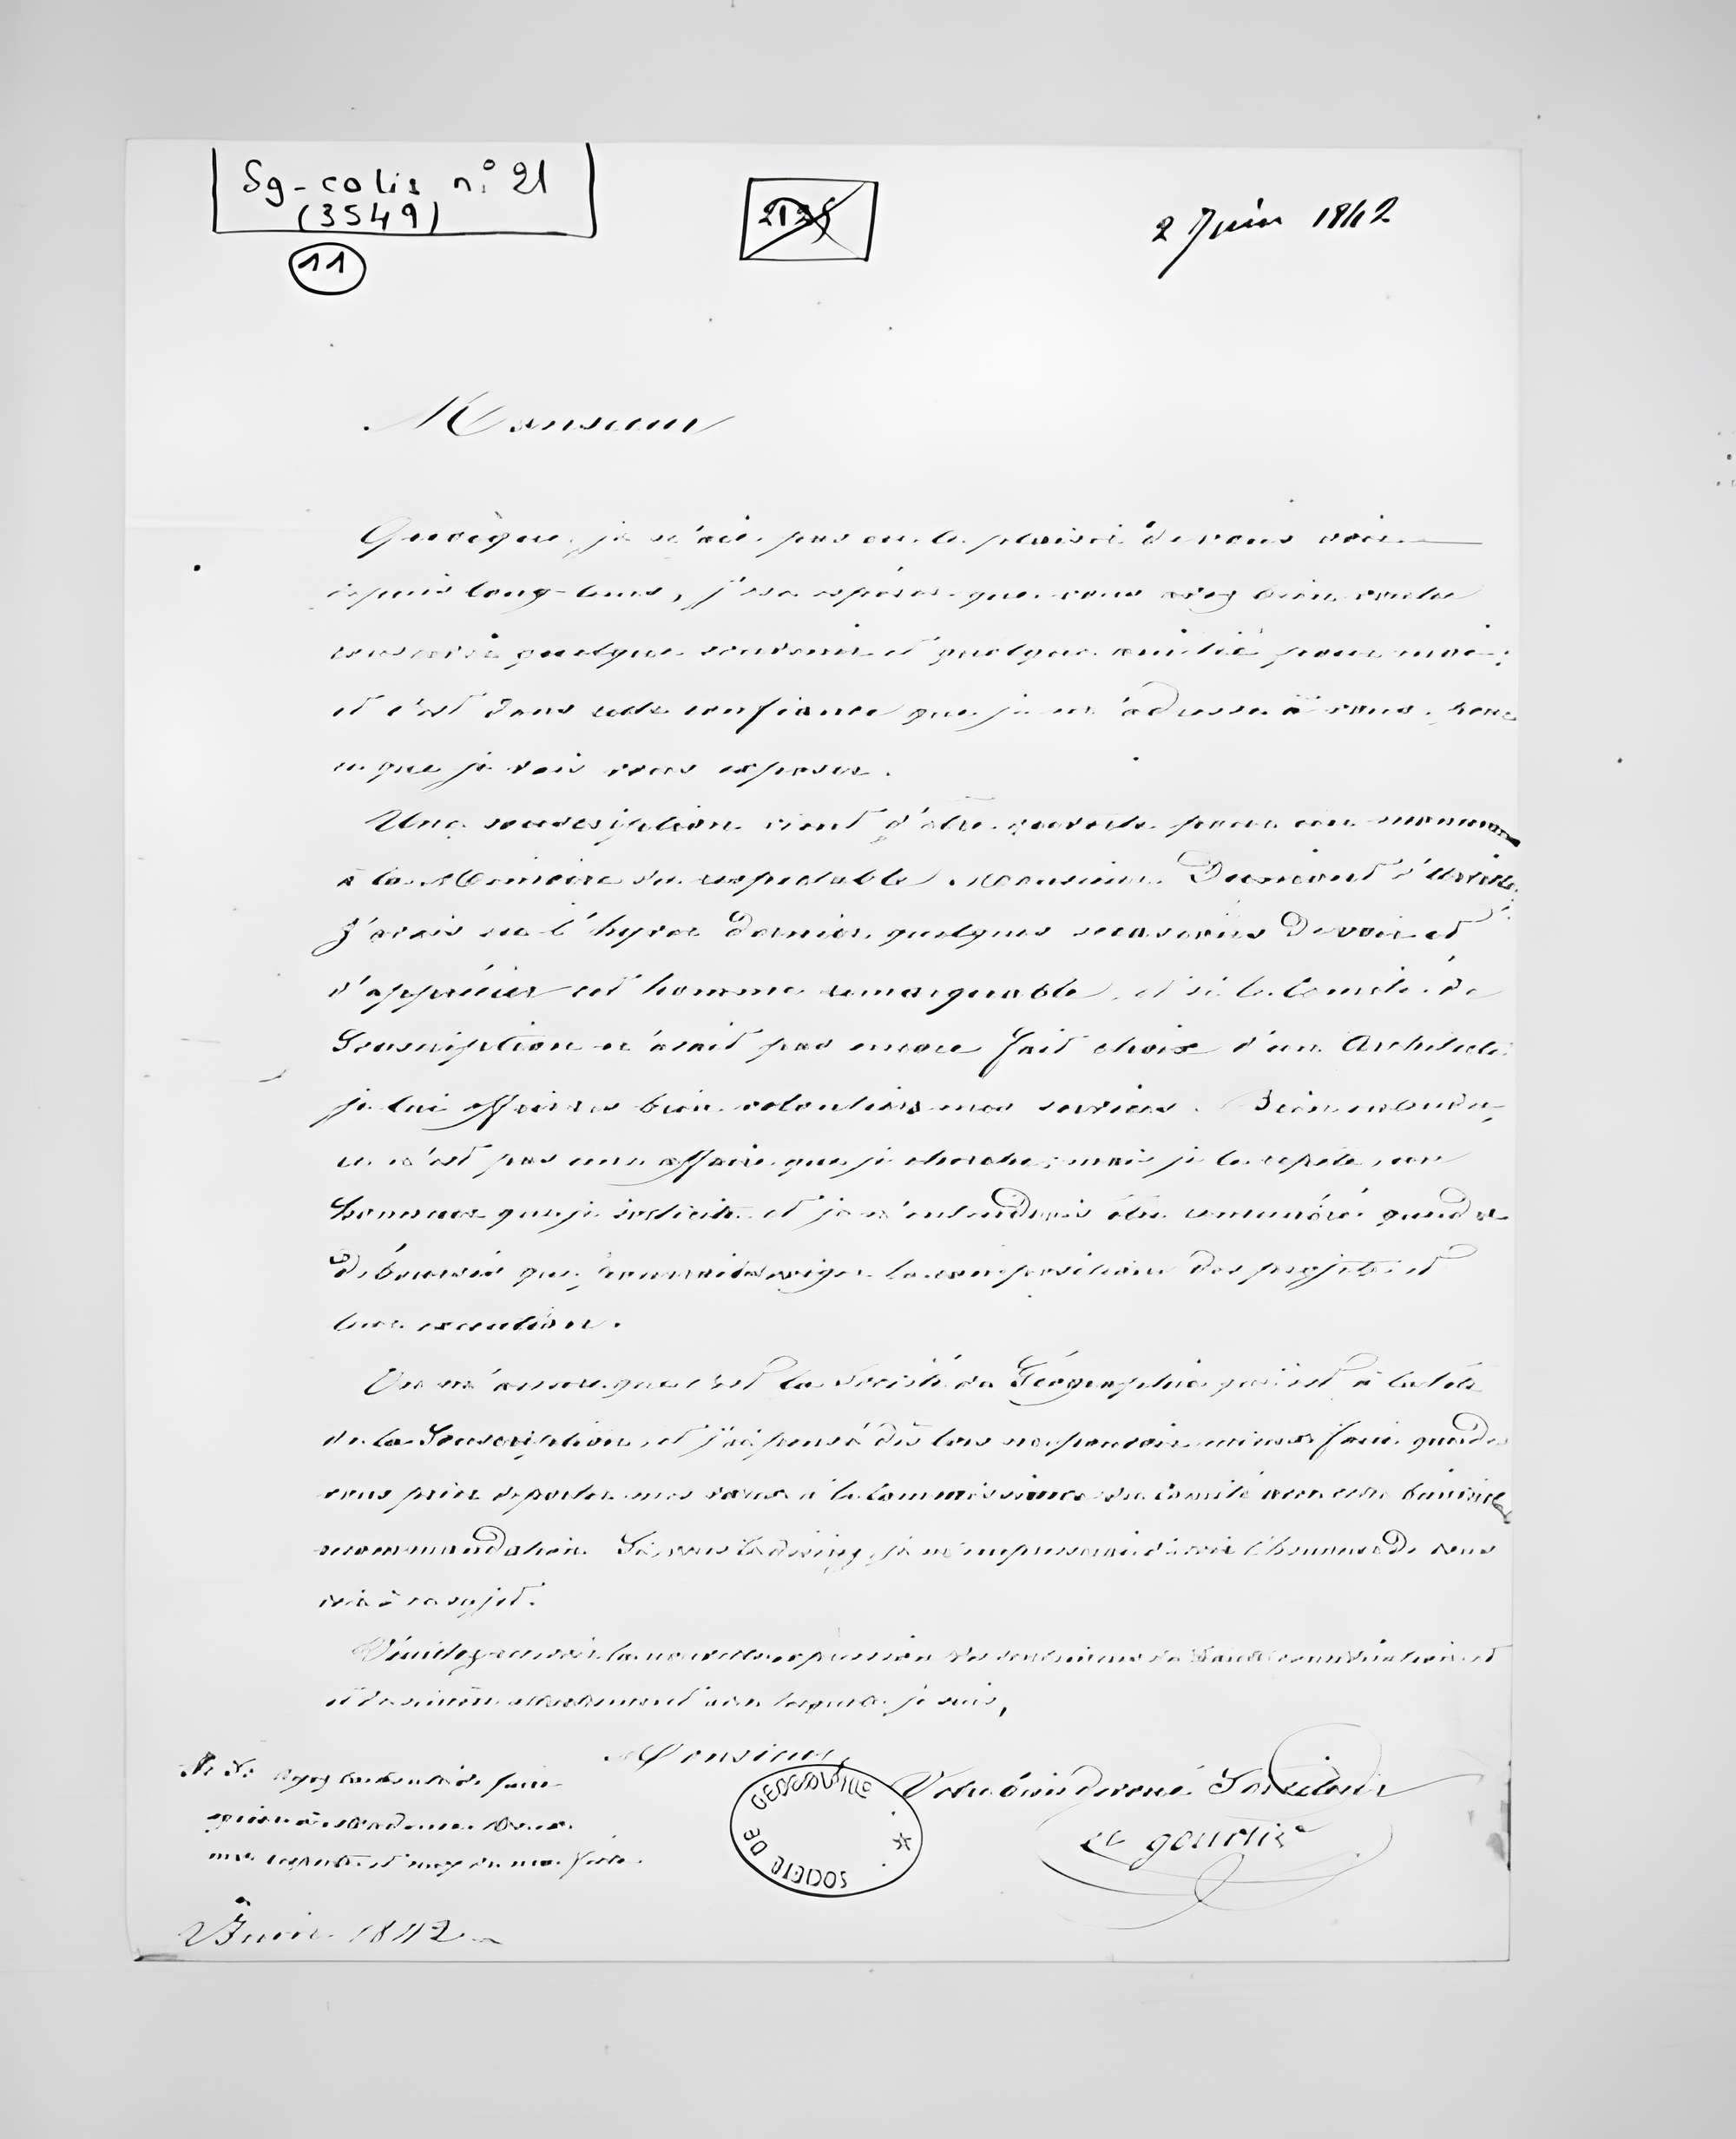 Sg-colis n° 21
(3549)
11
2 Juin 1842
Monsieur
Quoique je n'aie pas eu le plaisir de vous voir
depuis long-tems, j'ose espérer que vous avez bien voulu
conserver quelque souvenir et quelque amitié pour moi;
et c'est dans cette confiance que je m'adresse à vous pour
ce que je vais vous exposer.
Une souscription vient d'être ouverte pour un monument
à la Mémoire du respectable Monsieur Dumont d'Urville.
J'avais eu l'hyver dernier quelques occasions de voir et
d'apprécier cet homme remarquable, et si le Comité de
Souscription n'avait pas encore fait choix d'un Architecte
je lui offrirais bien volontiers mes services. Bien entendu,
ce n'est pas une affaire que je cherche; mais je le repète, un
honneur que je sollicite et je n'entendrais être remunéré que de
déboursés que pourrait exiger la composition des projets et
leur execution.
On m'assure que c'est la Société de Géographie qui est à la tête
de la Souscription, et j'ai pensé dès lors ne pouvoir mieux faire que de
vous prier de porter mes vœux à la connaissance du Comité avec votre bienveillante
recommandation. Si vous le désirez, je m'empresserai d'avoir l'honneur de vous
voir à ce sujet.
Veuillez recevoir la nouvelle expression des sentimens de haute considération et
et de sincère attachement avec lesquels je suis,
Monsieur,
Votre bien dévoué Serviteur
P. S. Ayez la bonté de faire
agréer à Madame
mes respects et ceux de ma
Juin 1842
SOCIETE DE GEOGRAPHIE